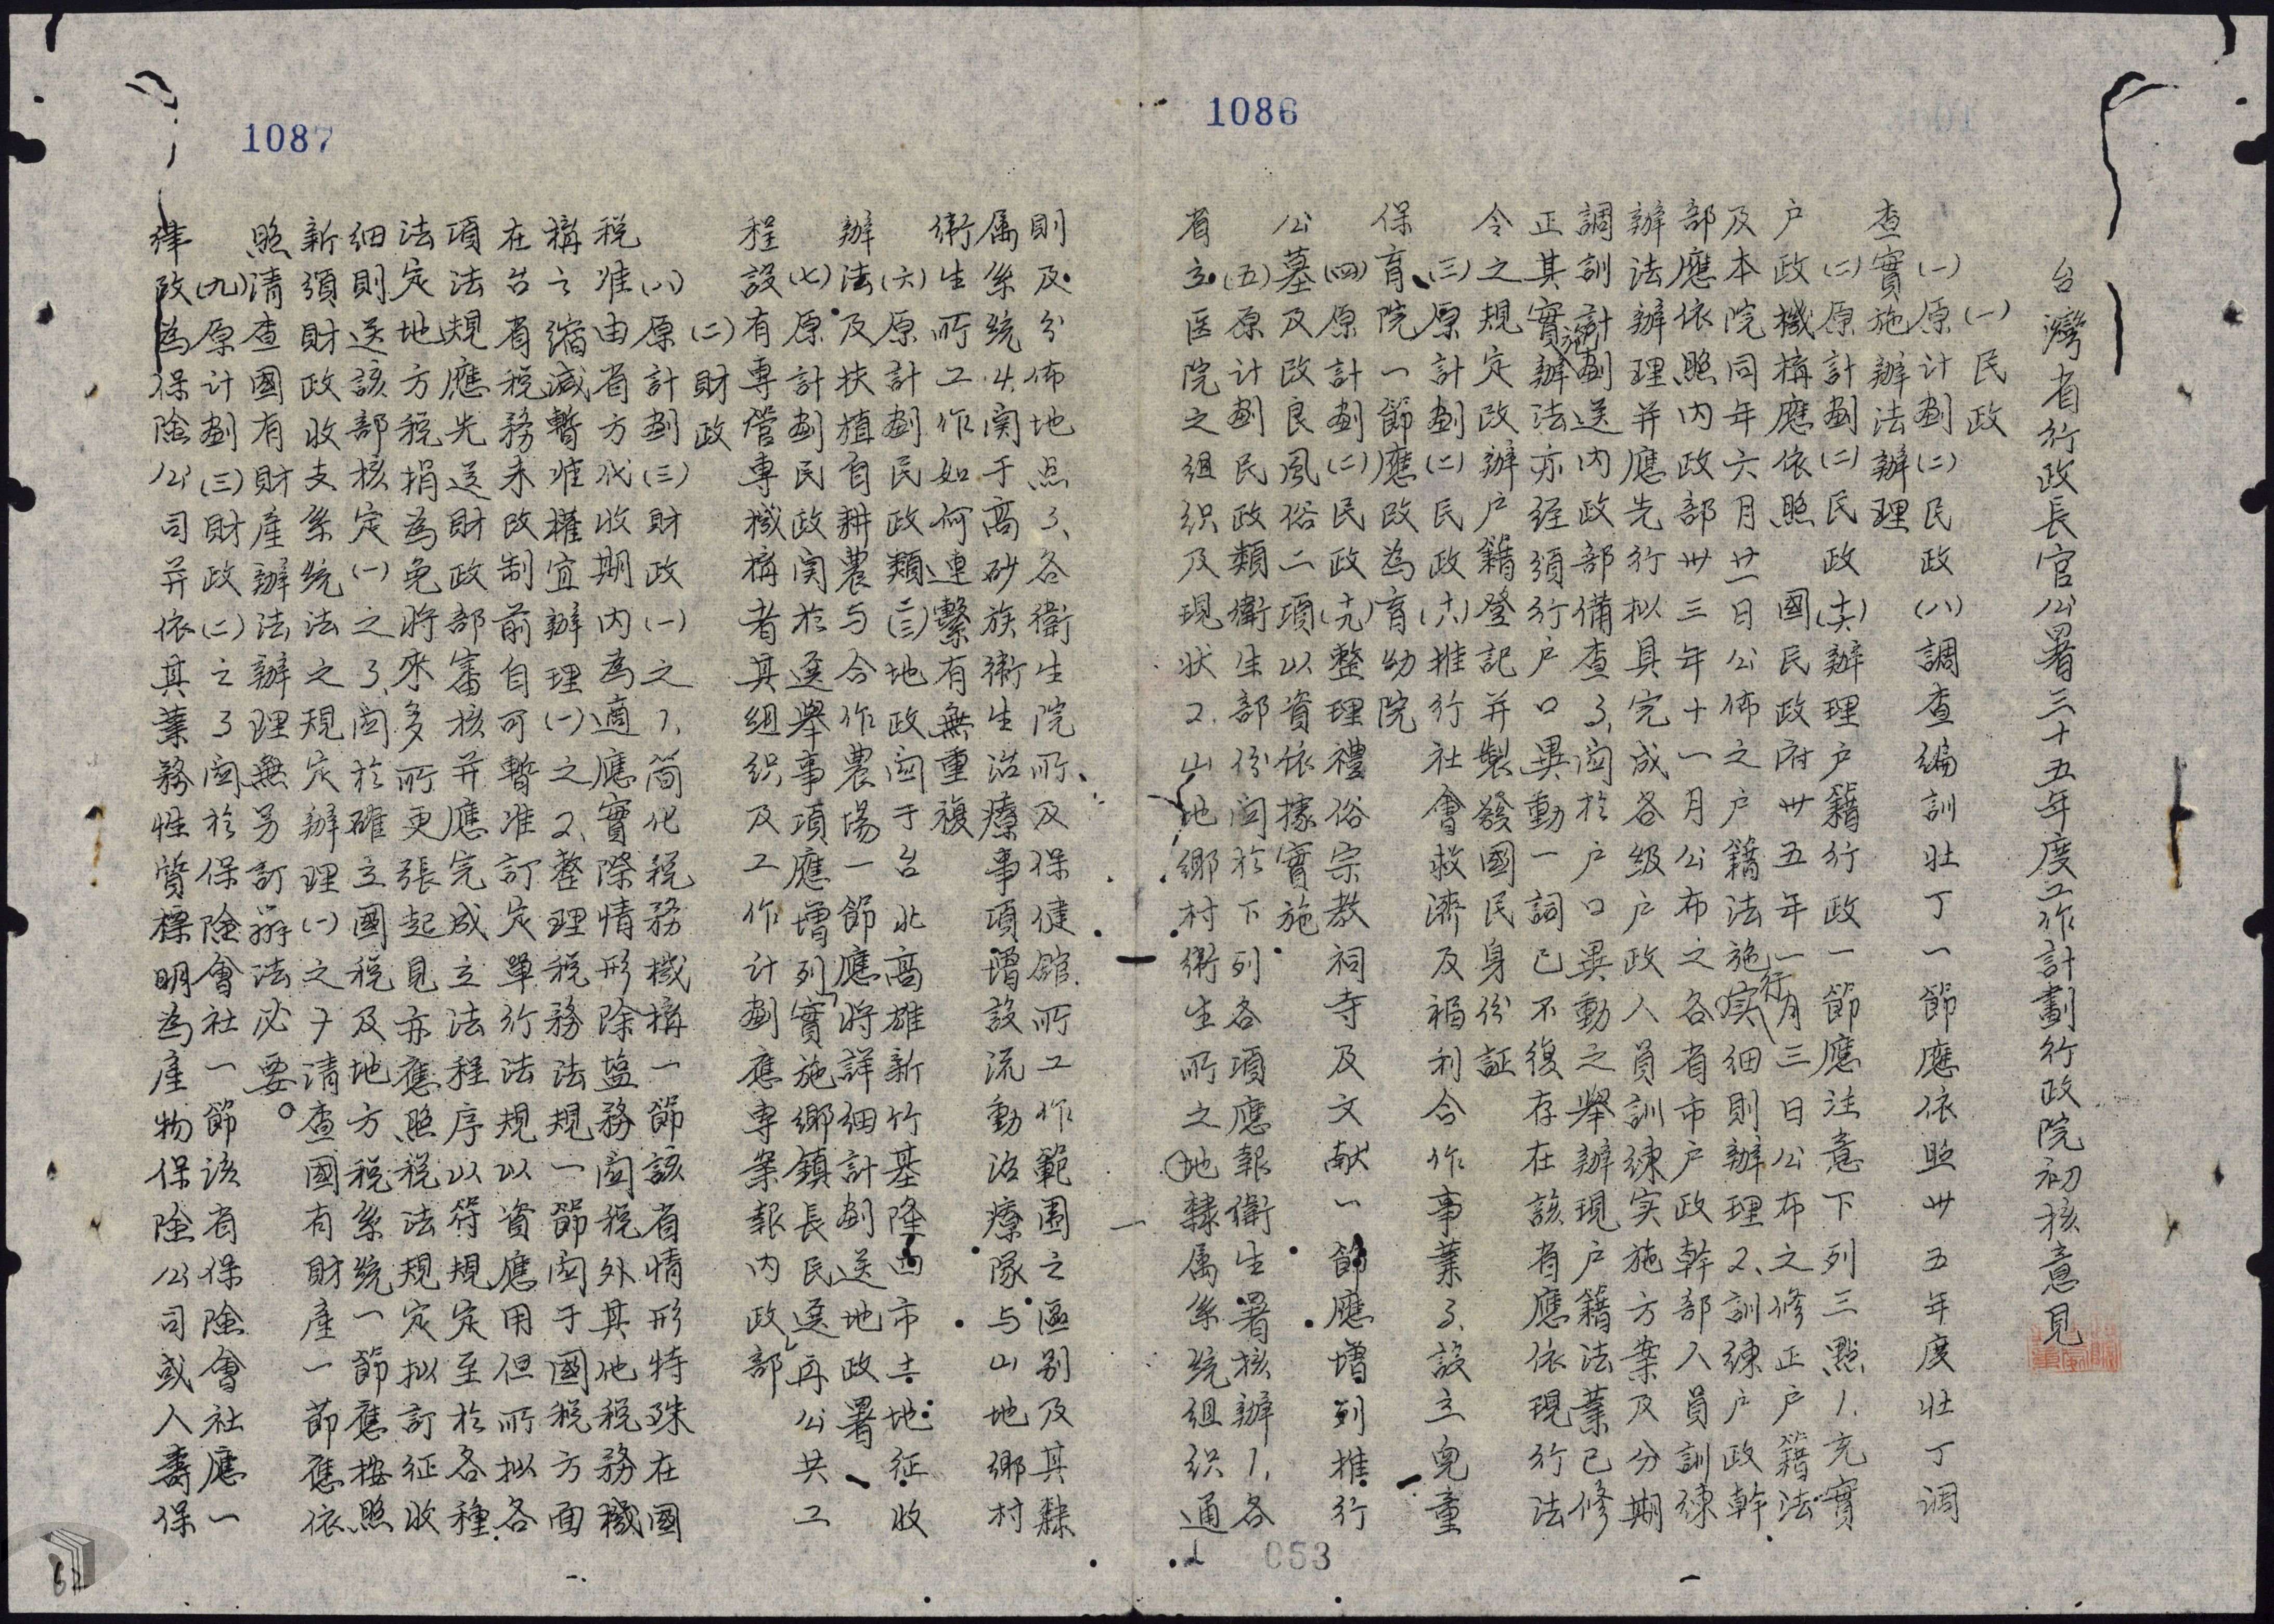 1086
台灣省行政長官公署三十五年度工作計劃行政院初核意見
(一)民政
(一)原计劃(二)民政(八)調查编訓壯丁一節應依照卅五年度壯丁调
查實施辦法辦理
(二)原計劃(二)民政(六)辦理户籍行政一節應注意下列三點1.充實
户政機構應依照國民政府卅五年一月三日公布之修正户籍法
及本院同年六月廿一日公佈之户籍法施行細則辦理2、訓練户政幹
部應依照内政部卅三年十一月公布之各省市户政幹部人員訓練
辦法辦理并應先行拟具完成各级户政人員訓練实施方案及分期
調訓計劃送内政部備查3、関於户口異動之舉辦現户籍法業已修
正其實施辦法亦经須行户口異動一詞已不復存在該省應依現行法
令之規定改辦户籍登記并製發國民身份証
(三)原計劃(二)民政(十六)推行社會救濟及福利合作事業3、設立兒童
保育院一節應改為育幼院
(四)原計劃(二)民政(十九)整理禮俗宗教祠寺及文献一節應增列推行
公墓及改良風俗二項以資依據實施
(五)原计劃民政類衛生部份関於下列各項應報衛生署核辦1.各
省立医院之组织及現状2.山地鄉村衛生所之地隸属系统组织通
053
1087
則及分佈地点3、各衛生院所、及保健館所工作範圍之區别及其隸
属系统4.関于高砂族衛生治療事項增設流動治療隊与山地鄉村
衛生所工作如何連繫有無重複
(六)原計劃民政類(三)地政関于台北高雄新竹基隆四市土地征收
辦法及扶植自耕農与合作農場一節應將詳細計劃送地政署
(七)原計劃民政関於選舉事項應增列「實施鄉鎮長民選」再公共工
程設有專营專機構者其组织及工作计劃應專案報内政部
(二)財政
(八)原計劃(三)財政(一)之1、简化税務機構一節該省情形特殊在國
税准由省方代收期内為適應實際情形除塩務関税外其他税務機
構之缩减暫准權宜辦理(一)之2、整理税務法規一節関于國税方面
在台省税務未改制前自可暫准訂定單行法規以資應用但所拟各
項法規應先送財政部審核并應完成立法程序以符規定至於各種
法定地方税捐為免將來多所更張起見亦應照税法規定拟訂征收
细則送該部核定(一)之3、関於確立國税及地方税系统一節應按照
新須財政收支系统法之規定辦理(一)之7清查國有財產一節應依
照清查國有財產辦法辦理無另訂辦法必要。
(九)原计劃(三)財政(二)之3関於保險會社一節該省保險會社應一
律改為保險公司并依其業務性質標明為產物保險公司或人壽保